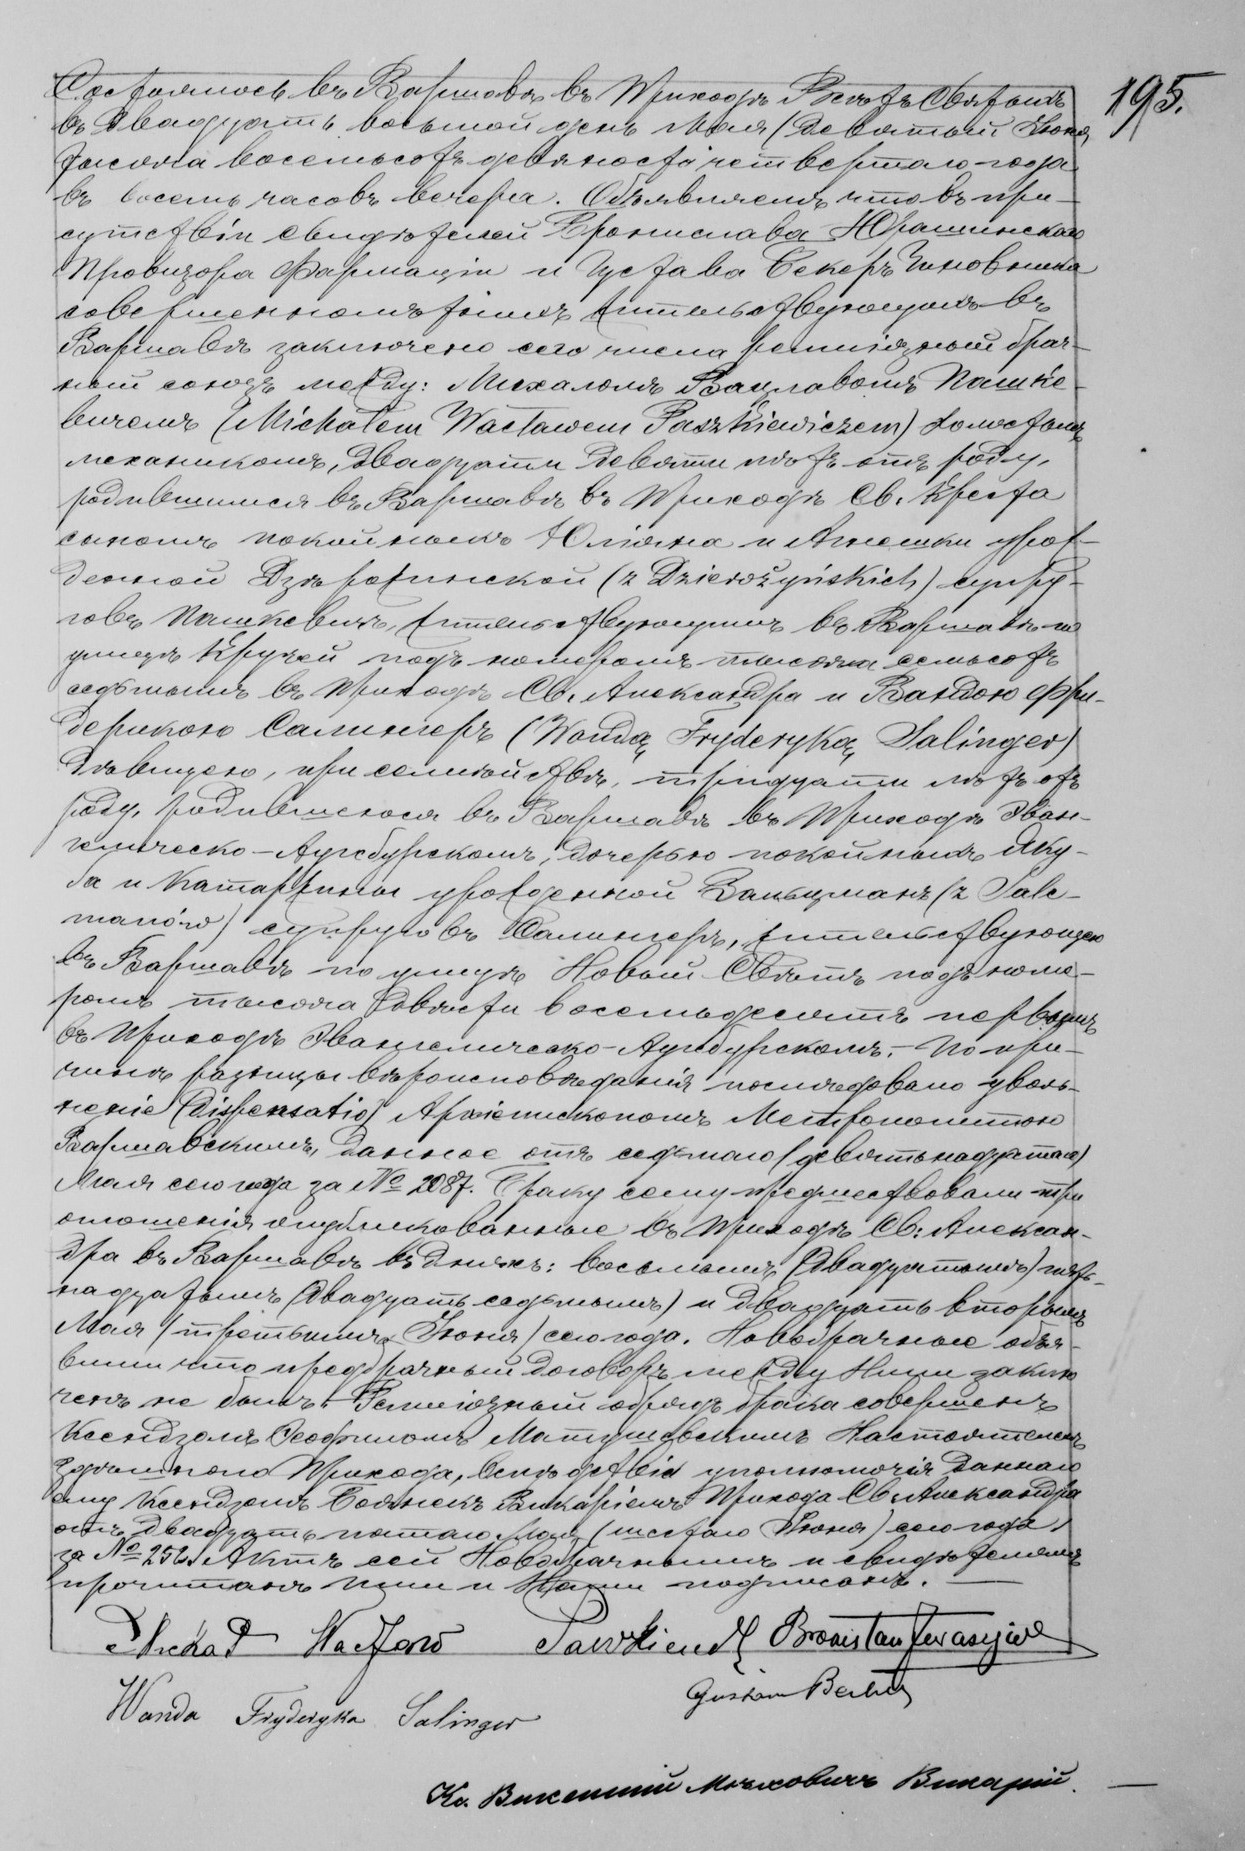 195.
Состоялось въ Варшавѣ въ Приходѣ Всѣхъ Святыхъ
въ двадцать восьмой день Мая (девятый Іюня)
тысяча восемьсотъ девяносто четвертаго года
въ восемь часовъ вечера. Объявляемъ что въ при-
сутствіи свидѣтелей Бронислава
Провизора Фармаціи и Густава Бекеръ Чиновника
совершеннолѣтнихъ жительствующихъ въ
Варшавѣ заключено сего числа религіозный брач-
ный союзъ между: Михаломъ Вацлавомъ Пашке-
вичемъ (Michałem Wacławem Paszkiewiczem) холостымъ
механикомъ, двадцати девяти лѣтъ отъ роду,
родившимся въ Варшавѣ въ Приходѣ Св. Креста
сыномъ покойныхъ Юліяна и Агнешки урож-
денной Дзѣрожинской (z Dzierożyńskich) супру-
говъ Пашкевичъ, жительствующимъ въ Варшавѣ по
улицѣ Кручей подъ номеромъ тысяча семьсотъ
седьмымъ въ Приходѣ Св. Александра и Вандою Фри-
дерикою Салингеръ (Wandą Fryderyką Salinger)
дѣвицею, при семействѣ, тридцати лѣтъ отъ
роду, родившеюся въ Варшавѣ въ Приходѣ Эван-
гелическо-Аугсбургскомъ, дочерью покойныхъ Яку-
ба и Катаржины урожденной Зальцманъ (z Salc-
manów) супруговъ Салингеръ, жительствующею
въ Варшавѣ по улицѣ Новый Свѣтъ подъ номе-
ромъ тысяча двѣсти восемьдесятъ первымъ
въ Приходѣ Эвангелическо-Аугсбургскомъ. - По при-
чинѣ разницы вѣроисповѣданія послѣдовало уволь-
неніе (dispensatio) Архіепископомъ Митрополитою
Варшавскимъ, данное отъ седьмаго (девятнадцатаго)
Мая сего года за № 2087. Браку сему предшествовали три
оглашенія опубликованные въ Приходѣ Св. Алексан-
дра въ Варшавѣ въ дняхъ: восьмымъ (двадцатымъ) пят-
надцатымъ (двадцать седьмымъ) и двадцать вторымъ
Мая (третьимъ Іюня) сего года. Новобрачные объя-
вили что предбрачный договоръ между Ними заклю
ченъ не былъ. Религіозный обрядъ брака совершенъ
Ксендзомъ Теофиломъ Матушевскимъ Настоятелемъ
здѣшняго Прихода, вслѣдствіи уполномочія даннаго
ему Ксендзомъ Викаріемъ Прихода Св. Александра
отъ двадцать пятаго Мая (шестаго Іюня) сего года
за № 252. Актъ сей Новобрачнымъ и свидѣтелямъ
прочитанъ Ими и Нами подписанъ. —
Michał Wacław Paszkiewicz Bronisław
Gustaw Beker
Wanda Fryderyka Salinger
Кс. Викентій Викарій. —